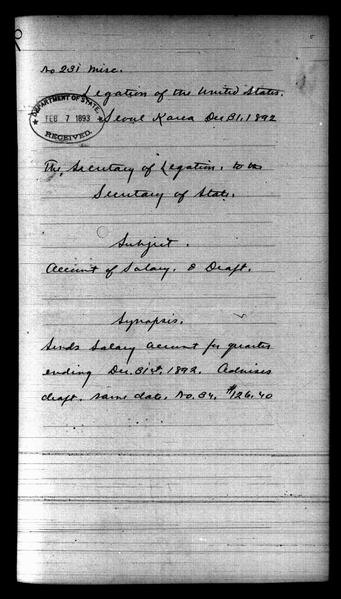 No 231 Misc.
Legation of the United States.
DEPARTMENT OF STATE
FEB 7 1893
RECEIVED.
Seoul Korea Dec 31, 1892
The Secretary of Legation, to the
Secretary of State.
Subject.
Account of Salary. & Draft.
Synopsis.
Sends Salary Account for quarter
ending Dec. 31st, 1892. Advises
draft, same date, No. 34, $126.40